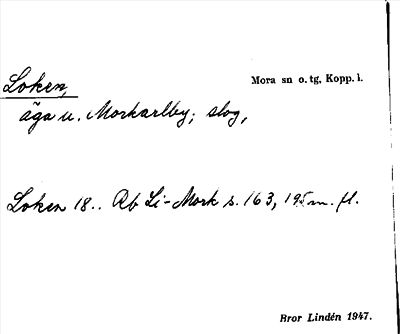 Loken,
Mora sn o. tg, Kopp. l.
äga u. Morkarlby; slog,
Loken 18.. Rb Li-Mork s. 163, 195 m. fl.
Bror Lindén 1947.